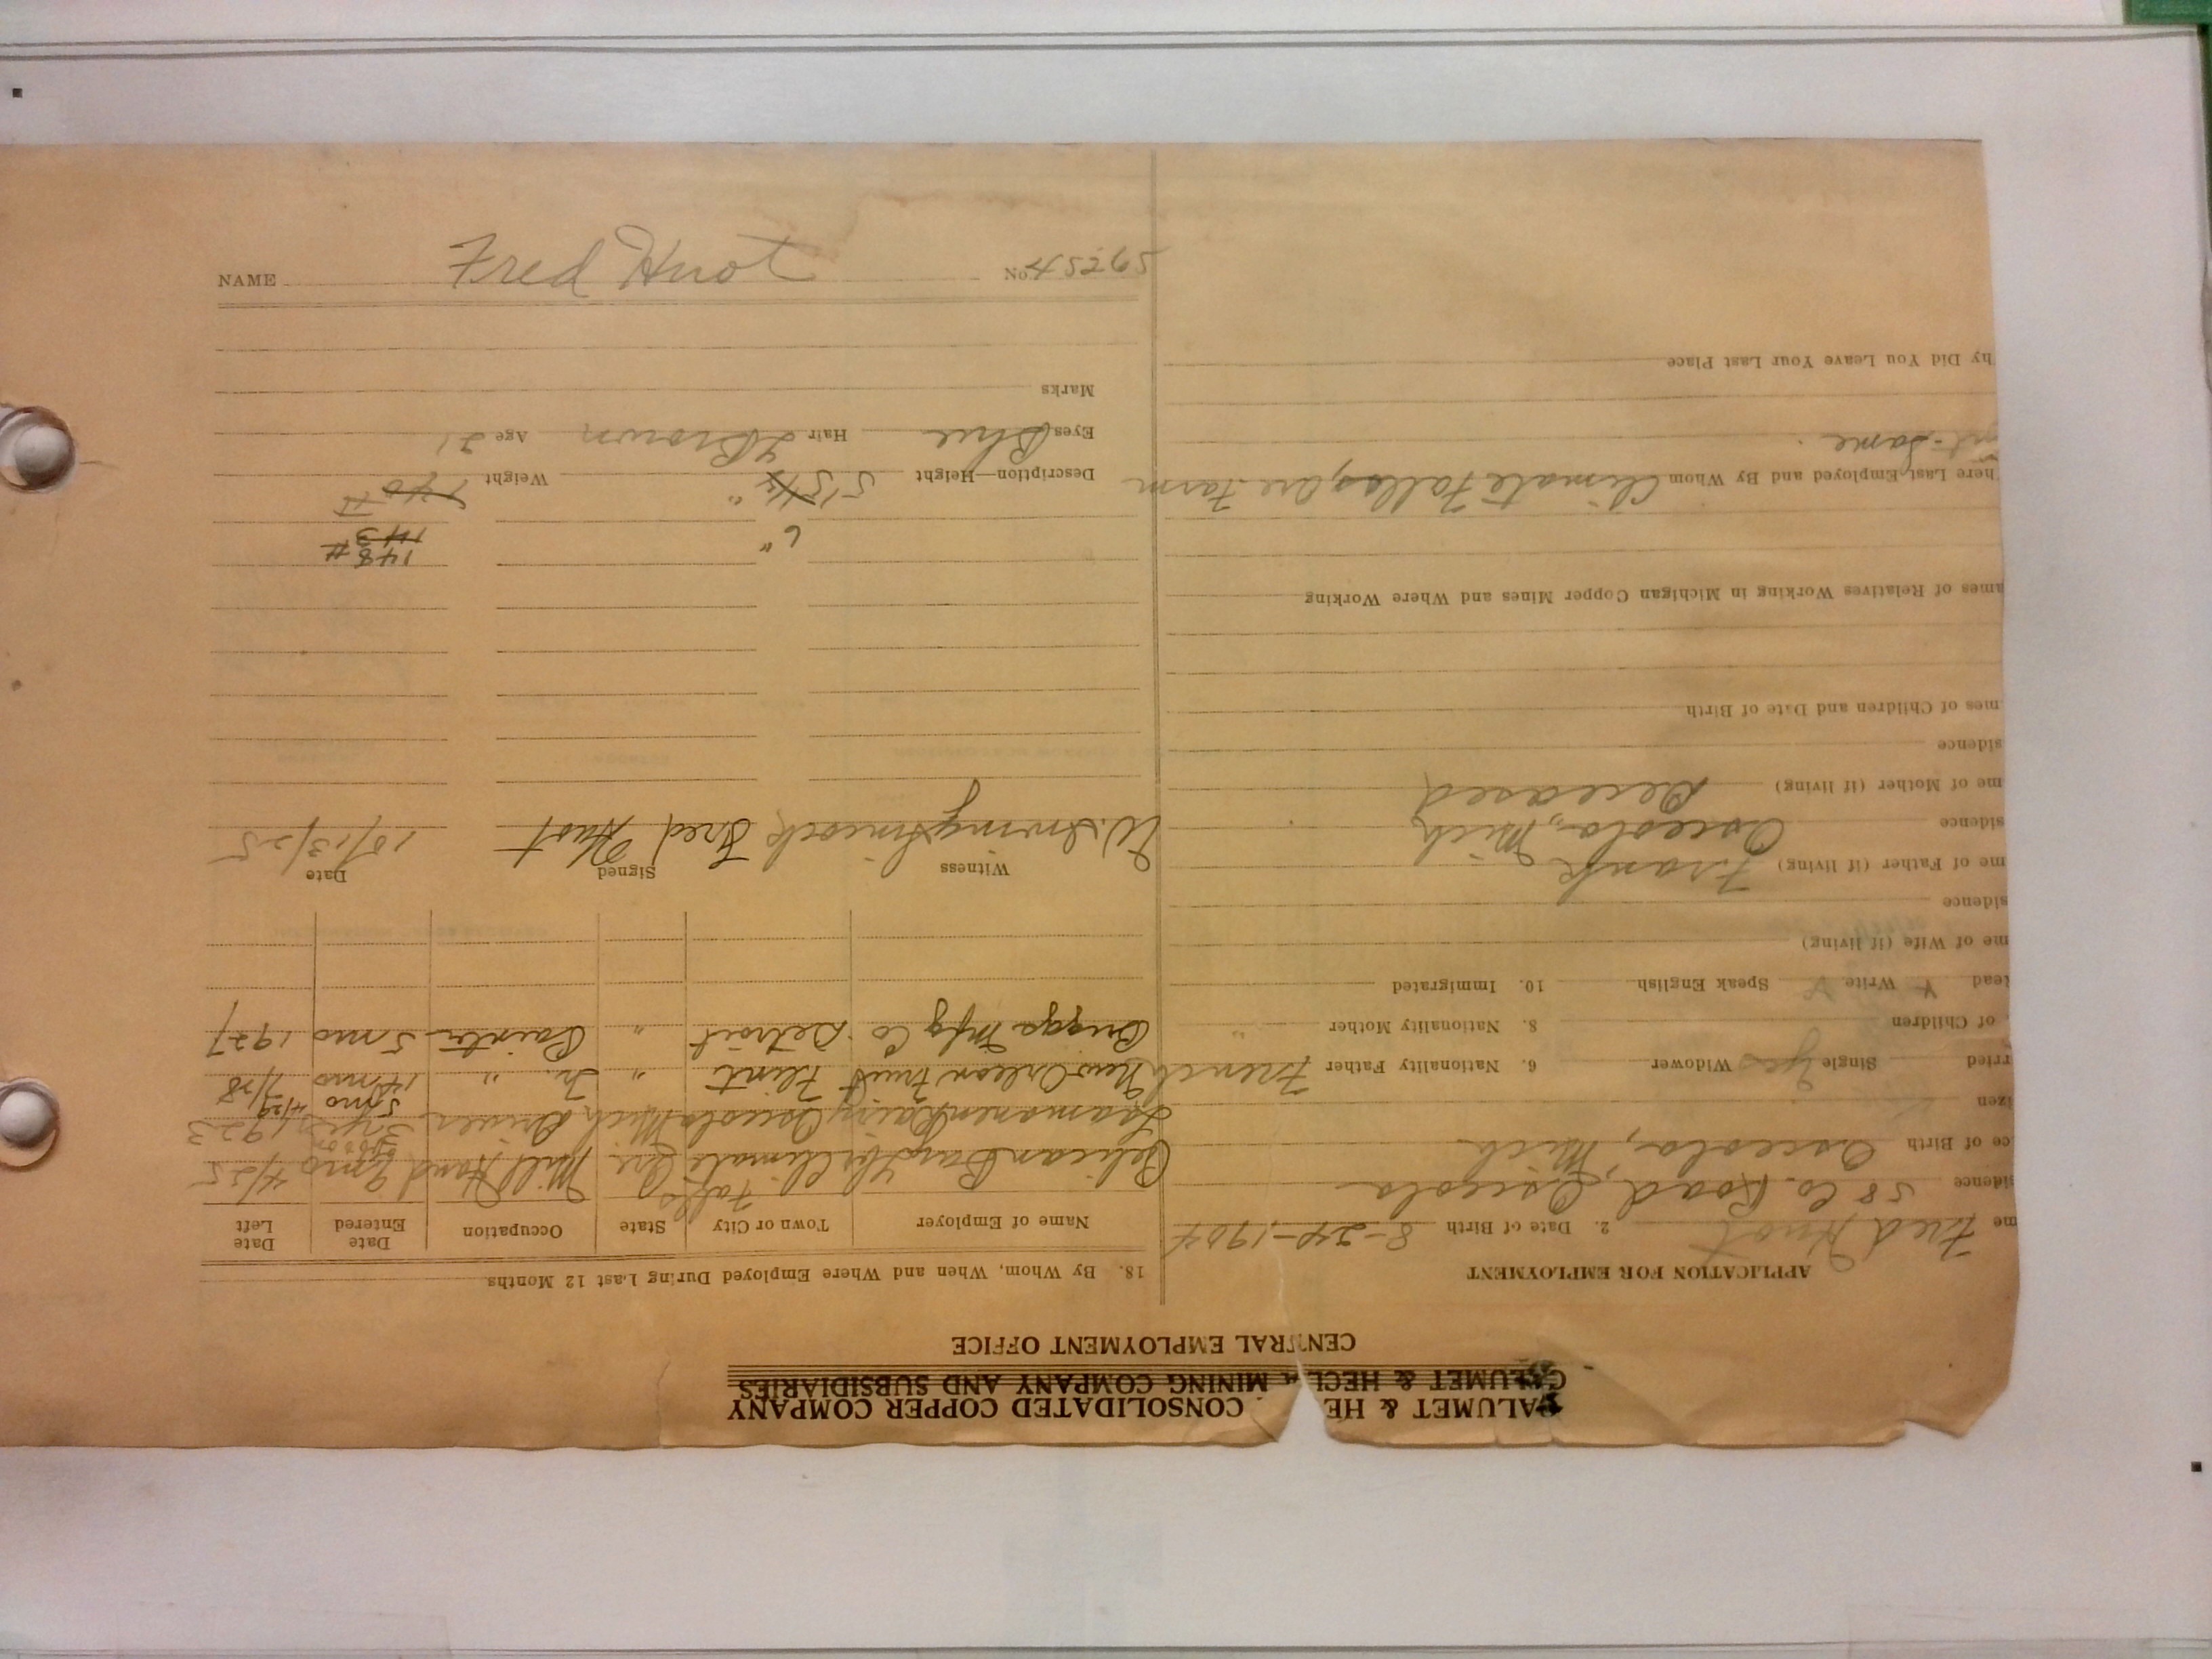 CALUMET & HECLA CONSOLIDATED COPPER COMPANY
CALUMET & HECLA MINING COMPANY AND SUBSIDIARIES
CENTRAL EMPLOYMENT OFFICE
APPLICATION FOR EMPLOYMENT
me Fred Huot 2. Date of Birth 8-24-1904
sidence 58 Co. Road, Osceola
ce of Birth Osceola, Mich
izen
rried Single Yes Widower 6. Nationality Father French
of Children 8. Nationality Mother "
Read Y Write Y Speak English 10. Immigrated
me of Wife (if living)
sidence
me of Father (if living) Frank
sidence Osceola, Mich
me of Mother (if living) Deceased
sidence
mes of Children and Date of Birth
ames of Relatives Working in Michigan Copper Mines and Where Working
here Last Employed and By Whom Climate Falls, Ore Farm
Same
hy Did You Leave Your Last Place
18. By Whom, When and Where Employed During Last 12 Months
Name of Employer Town or City State Occupation Date Entered Date Left
Pelican Bay Climate Falls Ore Mill Hand 9 mo 4/25
Dairy Osceola Mich Driver 3 yrs 1923
5 mo 4/29
New Orleans Fruit Flint " Tr. " 14 mos 7/28
Briggs Mfg Co Detroit " Painter 5 mos 1927
Witness Signed Date
W. Irving Fred Huot 10/13/25
6" 148#
143
Description—Height 5'5½" Weight 140 lb
Eyes Blue Hair L Brown Age 21
Marks
NAME Fred Huot No. 45265